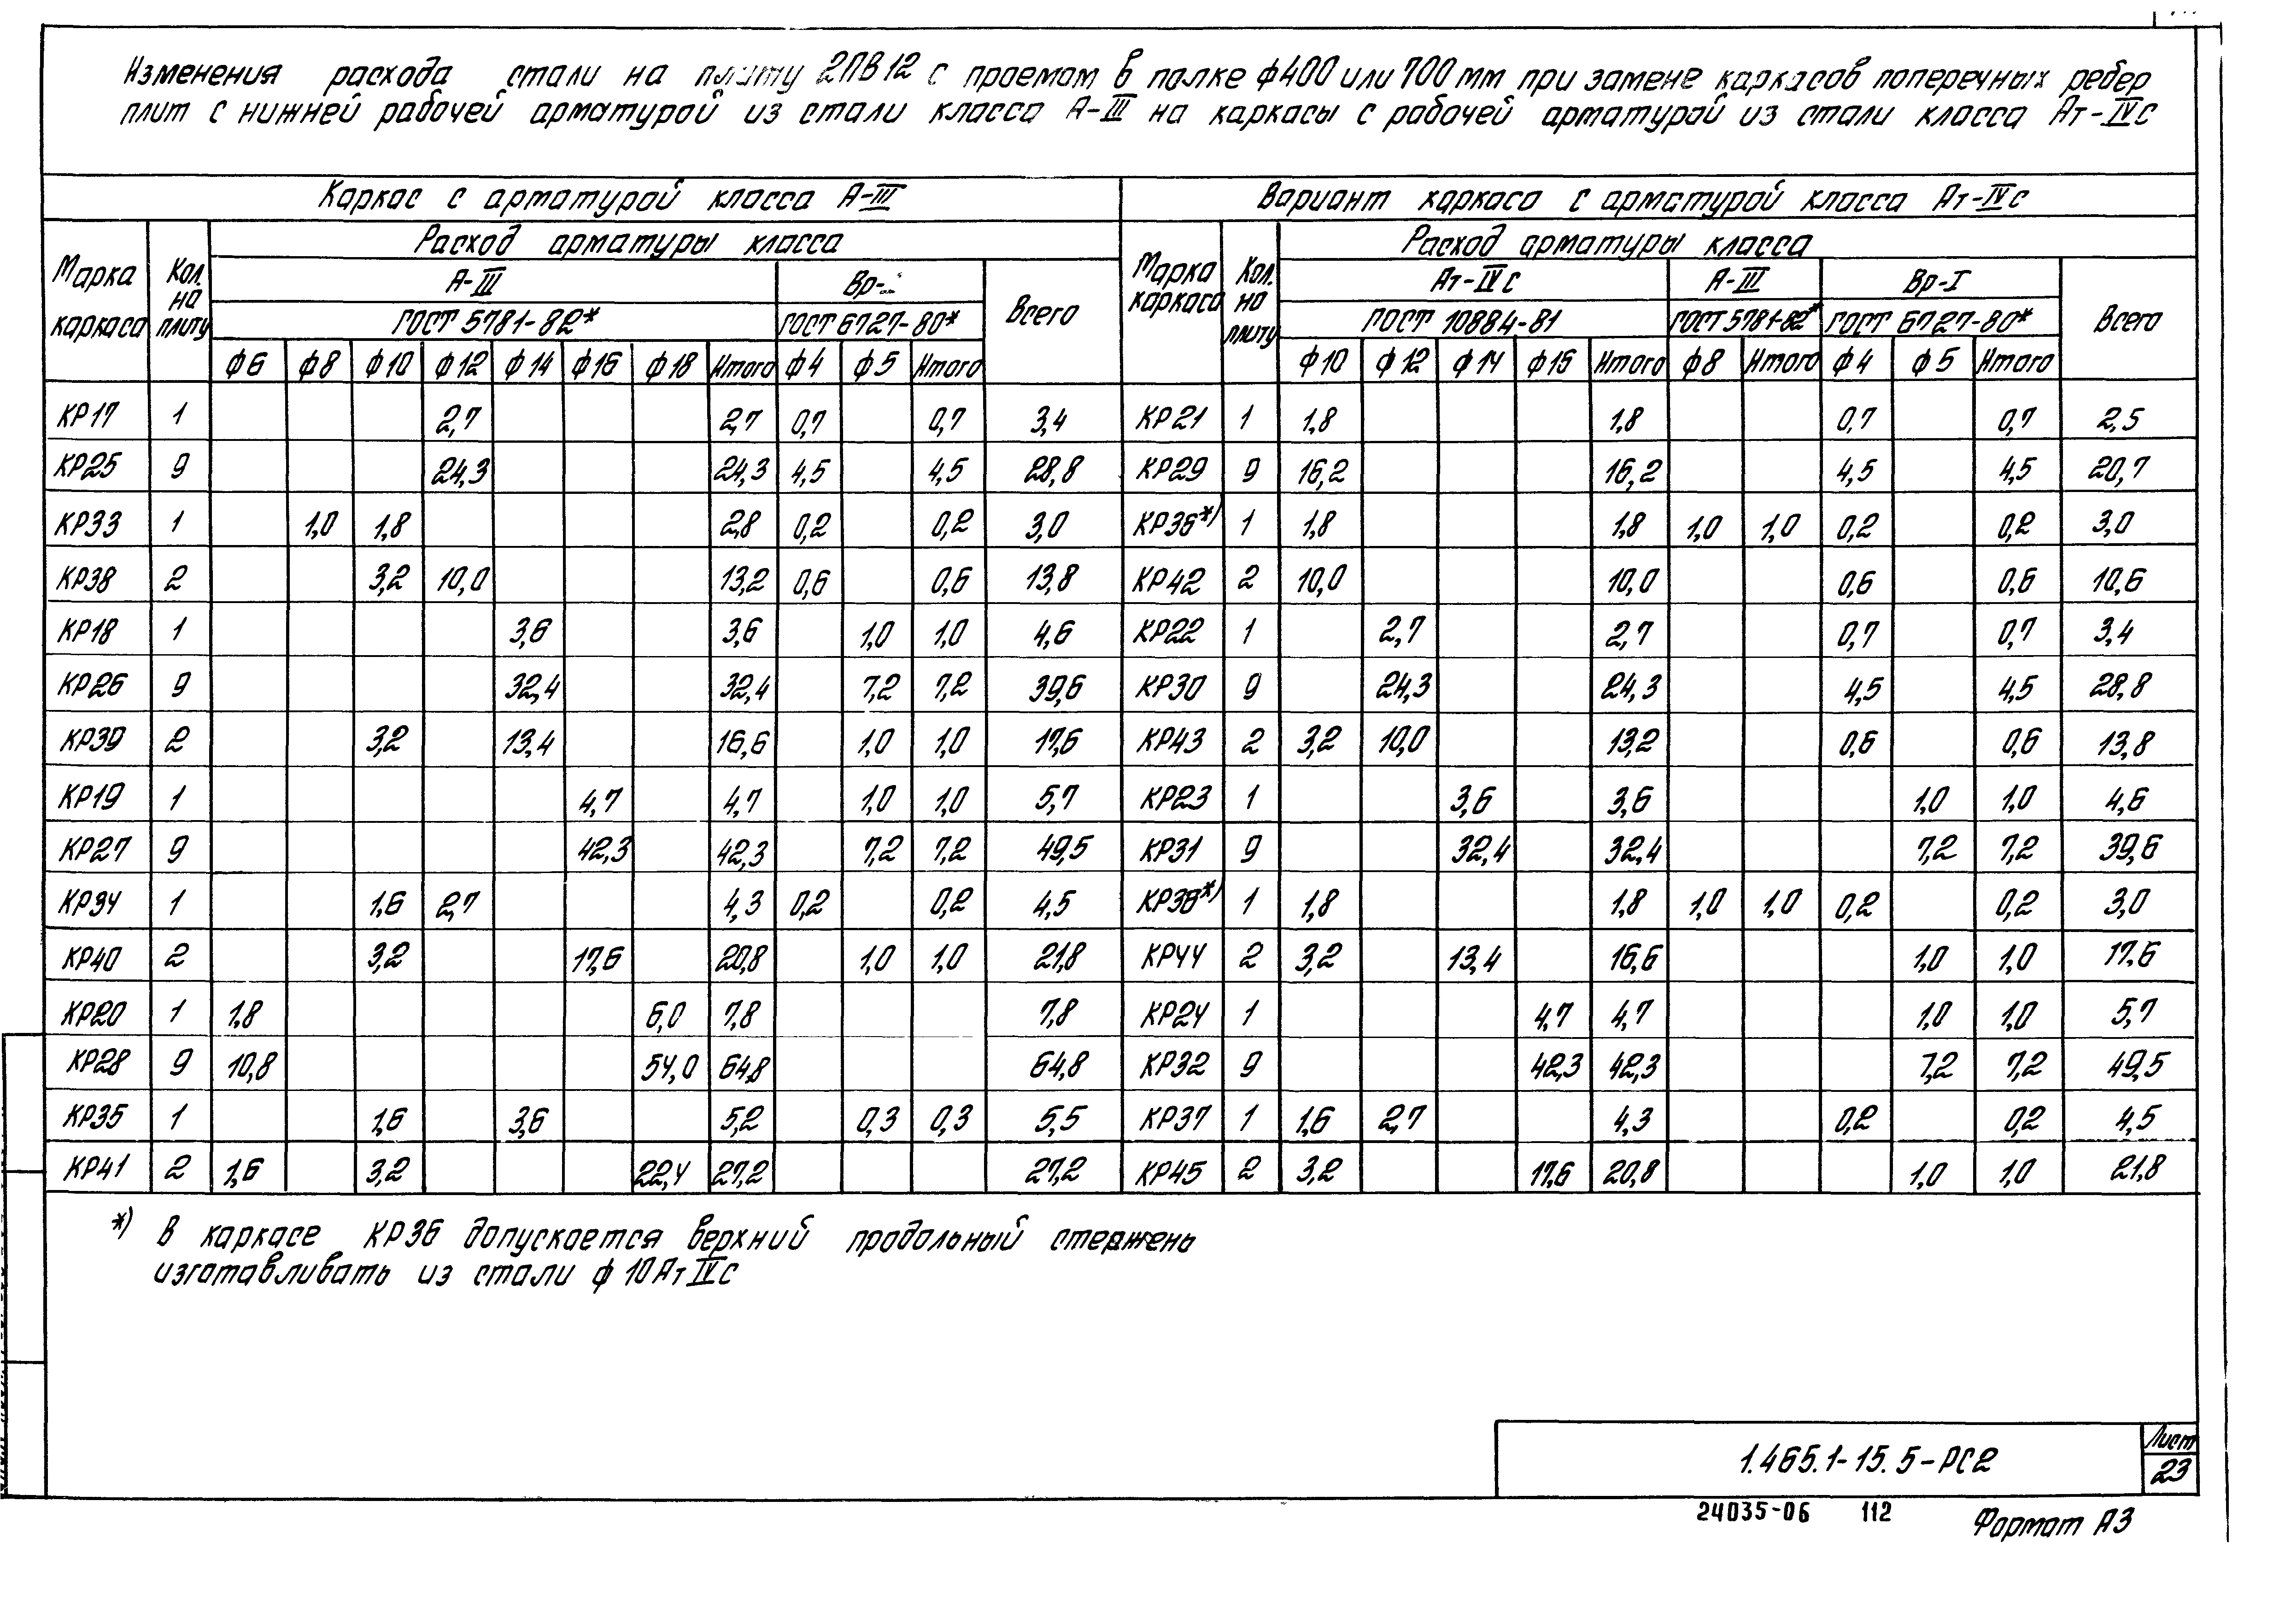 Изменения расхода стали на плиту 2ПВ12 с проемом в полке ф400 или 700 мм при замене каркасов поперечных ребер
плит с нижней рабочей арматурой из стали класса А-III на каркасы с рабочей арматурой из стали класса Ат-IVс
Каркас с арматурой класса А-III | Вариант каркаса с арматурой класса Ат-IVс
Марка каркаса | Кол. на плиту | Расход арматуры класса | Марка каркаса | Кол. на плиту | Расход арматуры класса
А-III | Вр- | Всего | Ат-IVс | А-III | Вр-I | Всего
ГОСТ 5781-82* | ГОСТ 6727-80* | ГОСТ 10884-81 | ГОСТ 5781-82* | ГОСТ 6727-80*
ф6 | ф8 | ф10 | ф12 | ф14 | ф16 | ф18 | Итого | ф4 | ф5 | Итого | ф10 | ф12 | ф14 | ф16 | Итого | ф8 | Итого | ф4 | ф5 | Итого
КР17 1 2,7 2,7 0,7 0,7 3,4 КР21 1 1,8 1,8 0,7 0,7 2,5
КР25 9 24,3 24,3 4,5 4,5 28,8 КР29 9 16,2 16,2 4,5 4,5 20,7
КР33 1 1,0 1,8 2,8 0,2 0,2 3,0 КР36*) 1 1,8 1,8 1,0 1,0 0,2 0,2 3,0
КР38 2 3,2 10,0 13,2 0,6 0,6 13,8 КР42 2 10,0 10,0 0,6 0,6 10,6
КР18 1 3,6 3,6 1,0 1,0 4,6 КР22 1 2,7 2,7 0,7 0,7 3,4
КР26 9 32,4 32,4 7,2 7,2 39,6 КР30 9 24,3 24,3 4,5 4,5 28,8
КР39 2 3,2 13,4 16,6 1,0 1,0 17,6 КР43 2 3,2 10,0 13,2 0,6 0,6 13,8
КР19 1 4,7 4,7 1,0 1,0 5,7 КР23 1 3,6 3,6 1,0 1,0 4,6
КР27 9 42,3 42,3 7,2 7,2 49,5 КР31 9 32,4 32,4 7,2 7,2 39,6
КР34 1 1,6 2,7 4,3 0,2 0,2 4,5 КР36*) 1 1,8 1,8 1,0 1,0 0,2 0,2 3,0
КР40 2 3,2 17,6 20,8 1,0 1,0 21,8 КР44 2 3,2 13,4 16,6 1,0 1,0 17.6
КР20 1 1,8 6,0 7,8 7,8 КР24 1 4,7 4,7 1,0 1,0 5,7
КР28 9 10,8 54,0 64,8 64,8 КР32 9 42,3 42,3 7,2 7,2 49,5
КР35 1 1,6 3,6 5,2 0,3 0,3 5,5 КР37 1 1,6 2,7 4,3 0,2 0,2 4,5
КР41 2 1,6 3,2 22,4 27,2 27,2 КР45 2 3,2 17,6 20,8 1,0 1,0 21,8
*) В каркасе КР36 допускается верхний продольный стержень
изготавливать из стали ф 10 Ат IVс
1.465.1-15.5-РС2
Лист
23
24035-06 112
Формат А3